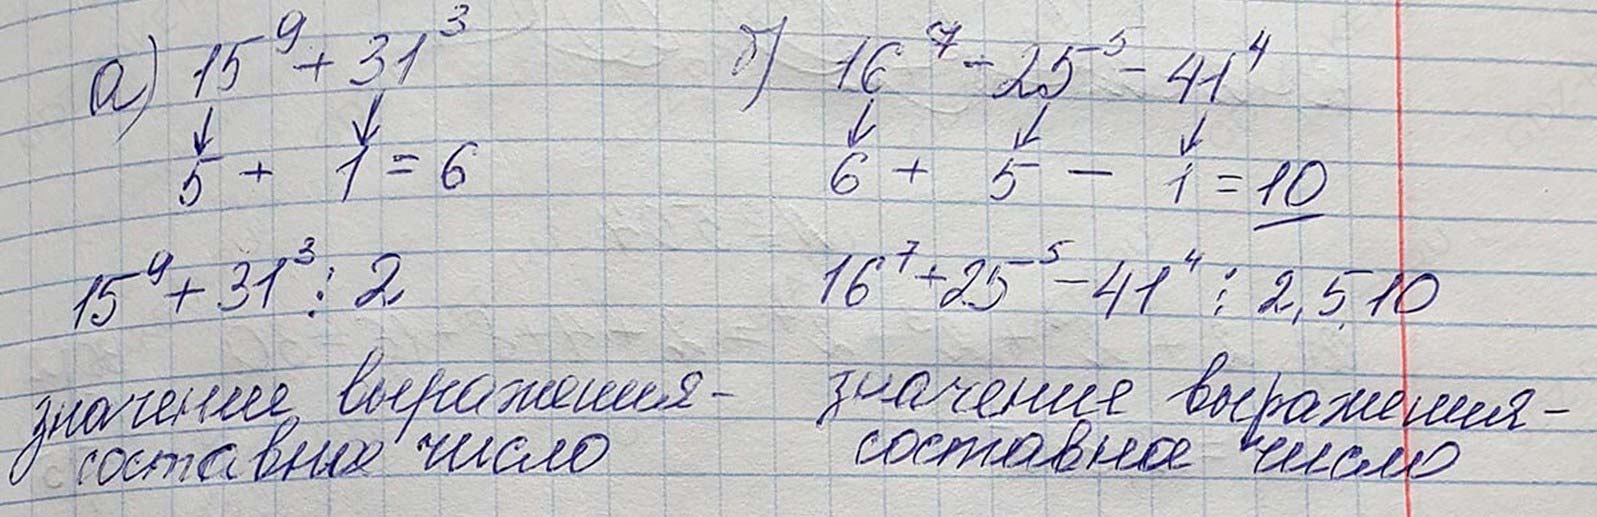 а) 15⁹ + 31³
5 + 1 = 6
15⁹ + 31³ ⋮ 2
значение выражения-
составное число
б) 16⁷ - 25⁵ - 41⁴
6 + 5 - 1 = 10
16⁷ + 25⁵ - 41⁴ ⋮ 2, 5, 10
значение выражения-
составное число